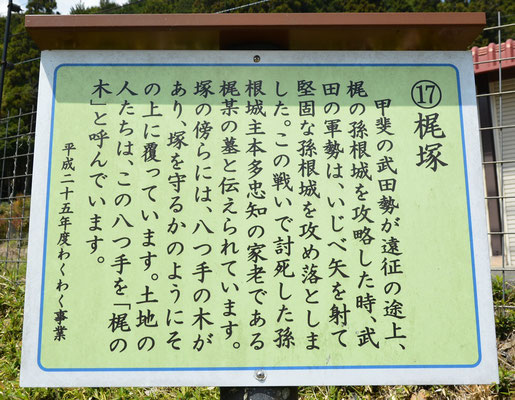 ⑰梶塚
甲斐の武田勢が遠征の途上、
梶の孫根城を攻略した時、武
田の軍勢は、いじべ矢を射て
堅固な孫根城を攻め落としま
した。この戦いで討死した孫
根城主本多忠知の家老である
梶某の墓と伝えられています。
塚の傍らには、八つ手の木が
あり、塚を守るかのようにそ
の上に覆っています。土地の
人たちは、この八つ手を「梶の
木」と呼んでいます。
平成二十五年度わくわく事業